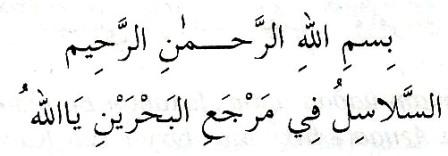 بِسمِ اللهِ الرَّحـــمٰنِ الرَّحِيم
السَّلاسِلُ فِي مَرْجَعِ البَحْرَيْنِ يَااللهُ